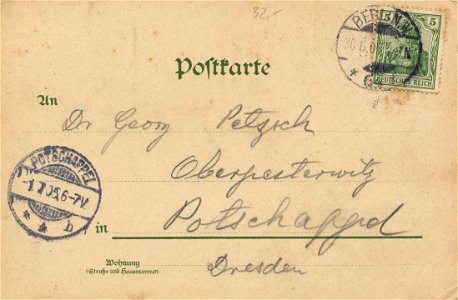 32,-
Postkarte
BERLIN
5
DEUTSCHES REICH
An
Dr Georg Petzsch
Oberpesterwitz
POTSCHAPPEL
-1.7.05.6-7V.
* * b
in Potschappel
Wohnung
(Straße und Hausnummer)
Dresden